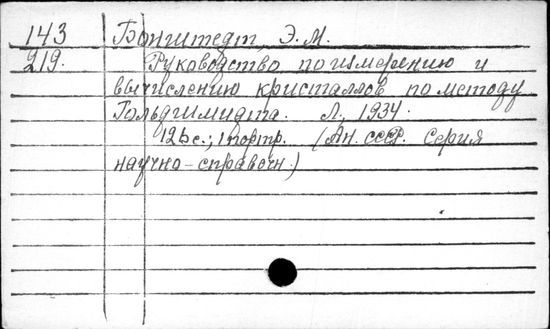 143 Бонштедт, Э.М.
219. Руководство по измерению и
вычислению кристаллов по методу
Гольдшмидта. Л., 1934.
126 с.; 1 портр. (Ан. СССР. Серия
научно-справочн.)